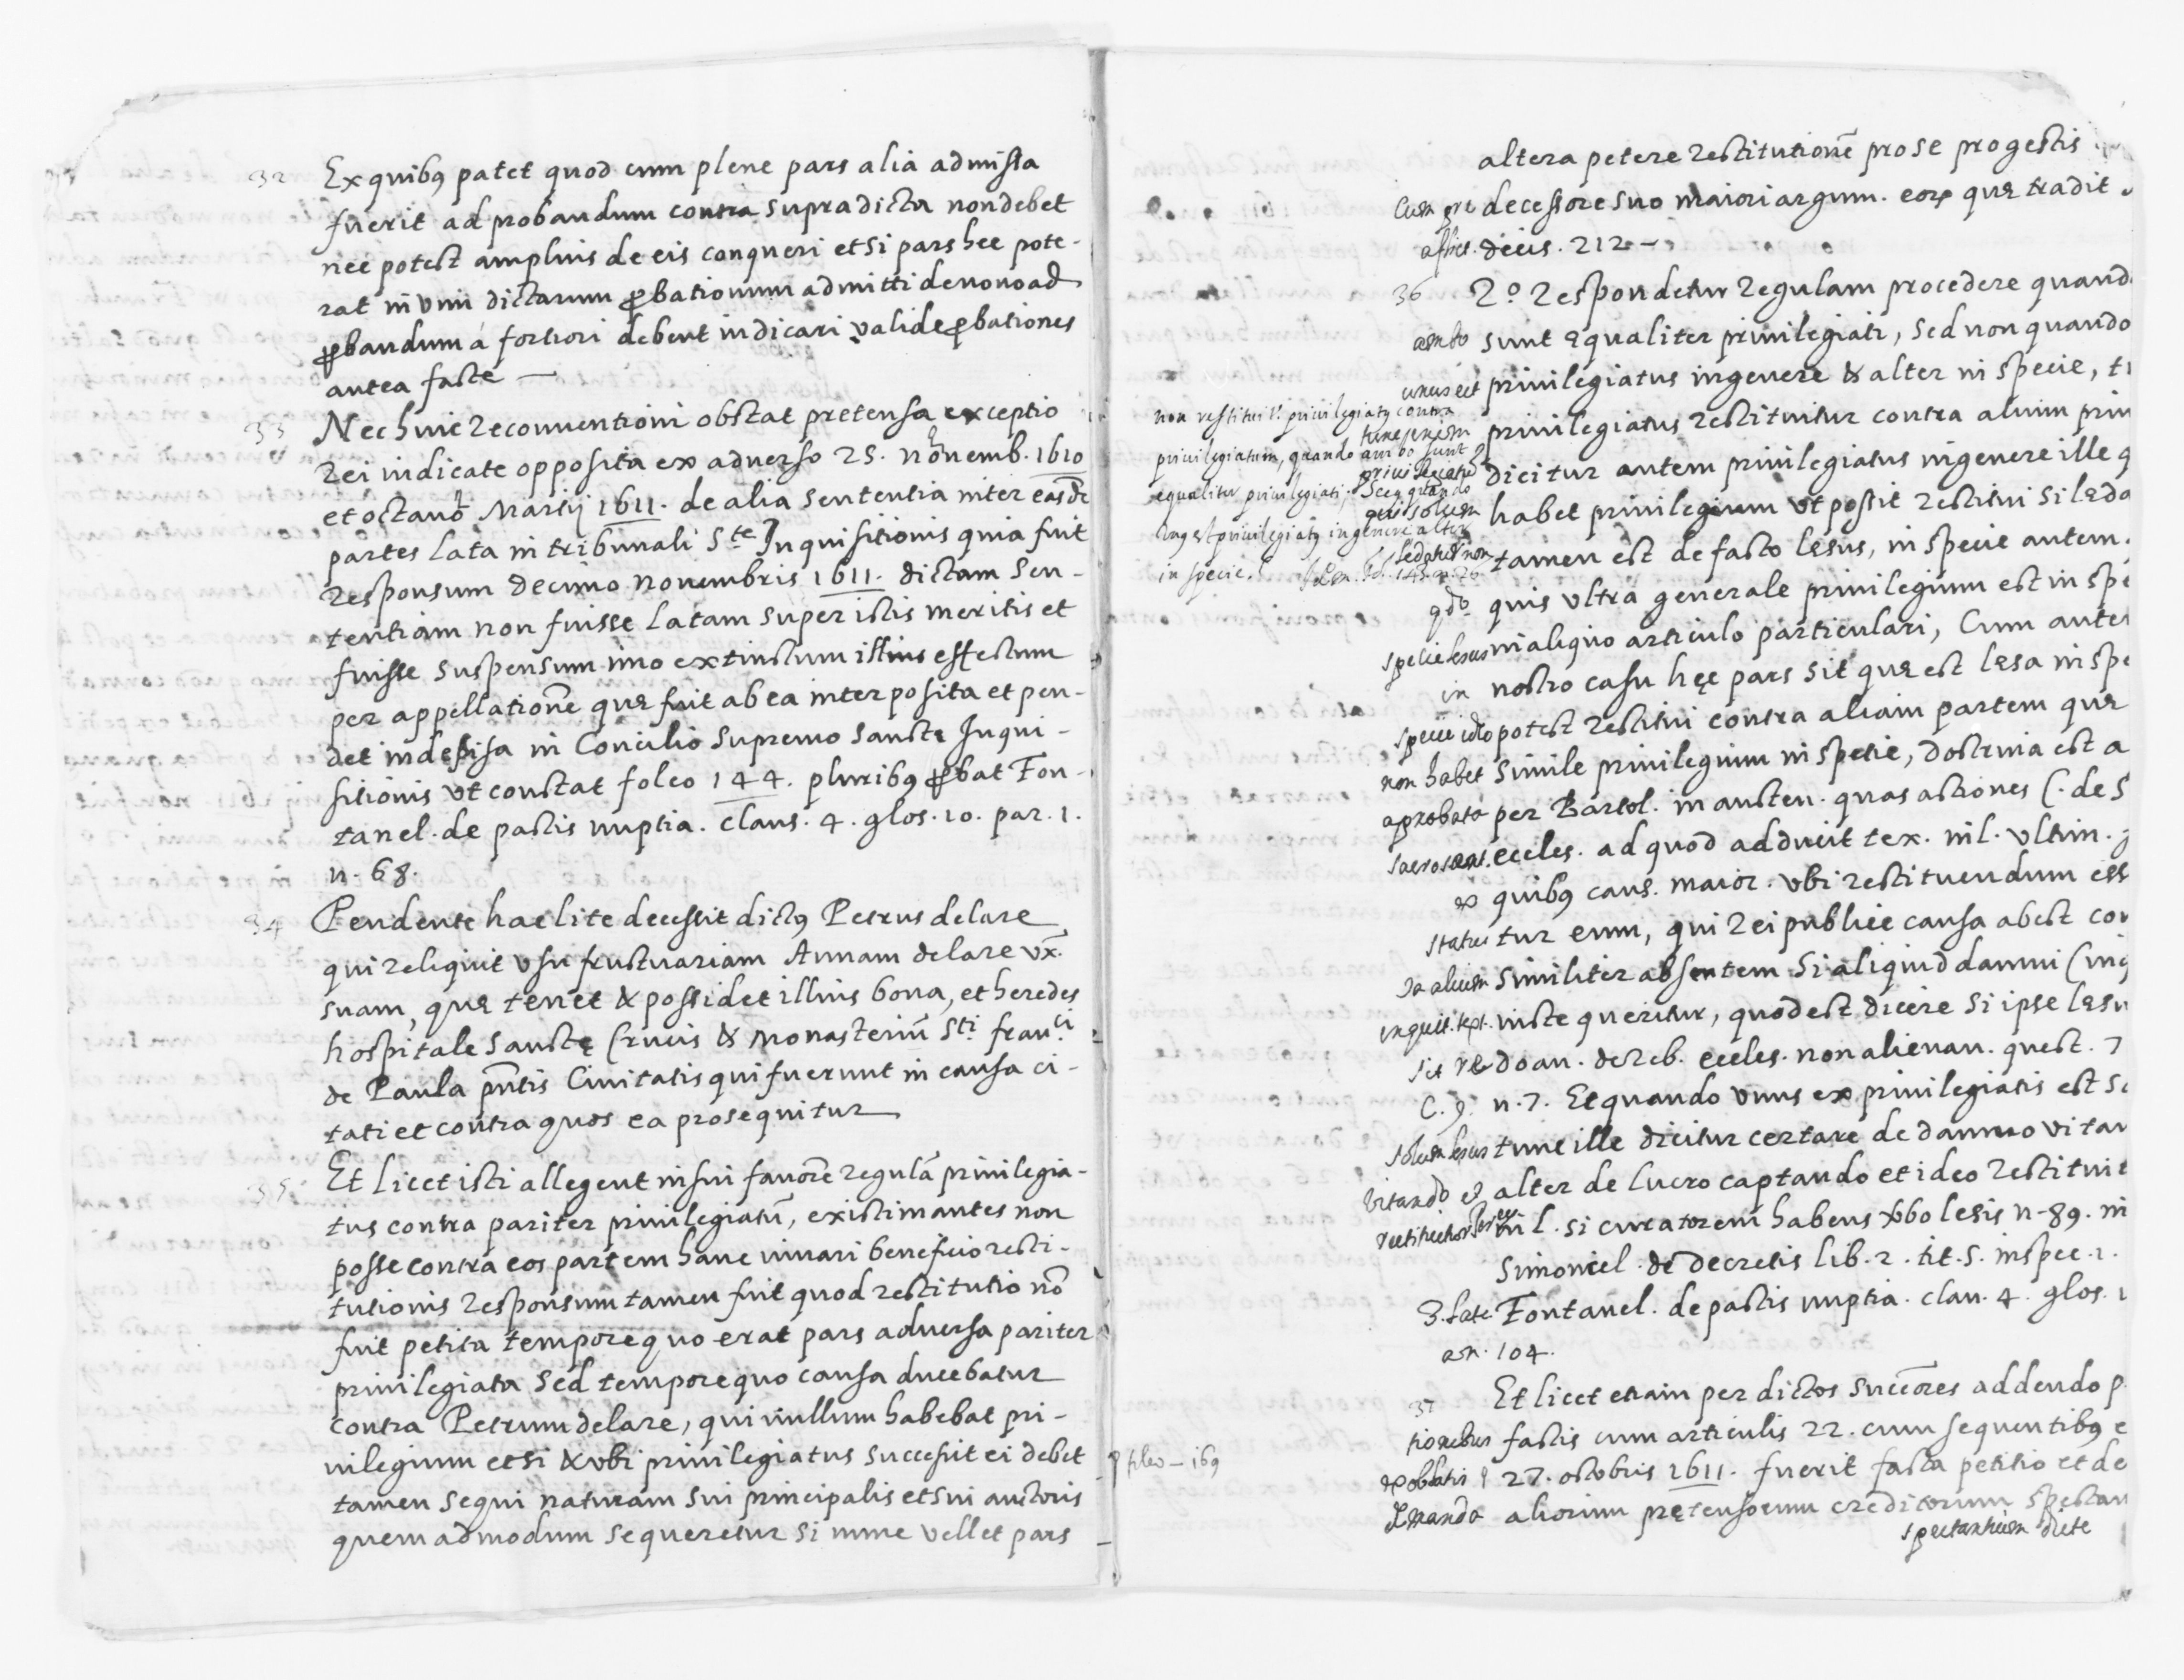 32 Ex quibꝯ patet quod cum plene pars alia admissa
fuerit ad probandum contra supradicta non debet
nec potest amplius de eis conqueri et si pars hec pote-
rat in vim dictarum ꝓbationum admitti denouo ad
ꝓbandum á fortiori debent iudicari valide ꝓbationes
antea facte —
33 Nec huic reconuentioni obstat pretensa exceptio
rei iudicate opposita ex aduerso 25. nouemb. 1610
et octauo Martij 1611. de alia sententia inter easdē
partes lata in tribunali Ste Inquisitionis quia fuit
responsum decimo nouembris 1611. dictam sen-
tentiam non fuisse latam super istis meritis et
fuisse suspensum imo extinctum illius effectum
per appellationē quæ fuit ab ea interposita et pen-
det indesisa in Concilio Supremo Sanctæ Inqui-
sitionis vt constat foleo 144. pluribꝯ ꝓbat Fon-
tanel. de pactis nuptia. claus. 4. glos. 10. par. 1.
n. 68.
34 Pendente hac lite decessit dictꝯ Petrus delare
qui reliquit vsufructuariam Annam delare vx̄.
suam, quæ tenet & possidet illius bona, et heredes
hospitale Sanctę Crucis & monasteriū Sti. franci.
de Paula pn̄tis Ciuitatis qui fuerunt in causa ci-
tati et contra quos ea prosequitur
35 Et licet isti allegent in sui fauorē regulā priuilegia-
tus contra pariter priuilegiatū, existimantes non
posse contra eos partem hanc iuuari beneficio resti-
tutionis responsum tamen fuit quod restitutio nō
fuit petita tempore quo erat pars aduersa pariter
priuilegiata sed tempore quo causa ducebatur
contra Petrum delare, qui nullum habebat pri-
uilegium et si & vbi priuilegiatus successit ei debet
tamen sequi naturam sui principalis et sui auctoris
quemadmodum sequeretur si nunc vellet pars
altera petere restitutionē pro se pro gestis
Cum predecessore suo maiori argum. eorꝝ quæ tradit
afflict. decis. 212 —
36 2º respondetur regulam procedere quand
ambo sunt æqualiter priuilegiati, sed non quando
unus est priuilegiatus in genere & alter in specie,
priuilegiatus restituitur contra alium priu
dicitur autem priuilegiatus in genere ille q
habet priuilegium vt possit restitui si læda
sed ad non tamen est de facto læsus, in specie autem.
non restituit privilegiatꝯ contra
privilegiatum, quando ambo sunt
equaliter privilegiati; Secꝯ quando
unꝯ est privilegiatꝯ in genere alter
in specie.
qdo quis vltra generale priuilegium est in spe
specie lesus in aliquo articulo particulari, Cum autem
in nostro casu hęc pars sit quæ est læsa in spe
specie ideo potest restitui contra aliam partem quæ
non habet simile priuilegium in spetie, doctrina est a
aprobata per Bartol. in aucten. quas actiones C. de S
sacrosant. eccles. ad quod adducit tex. in l. vltim.
ex quibꝯ caus. maior. vbi restituendum ess
statuitur eum, qui reipublice causa abest con
ra alium similiter absentem si aliquid damni (inq
inquit. text. iuste queritur, quod est dicere si ipse læsu
sit redoan. de reb. eccles. non alienan. quest. 7
C. 9. n. 7. Et quando vnus ex priuilegiatis est so
solum lesus tunc ille dicitur certare de damno vitan
vitando et alter de lucro captando et ideo restituit
in l. si curatorem habens ꝟbo lesis n. 89. in
Simoncel. de decretis lib. 2. tit. 5. inspec. 2.
3. late. Fontanel. de pactis nuptia. clau. 4. glos. 1
a n. 104.
37 Et licet etiam per dictos succēores addendo p
tionibus factis cum articulis 22. cum sequentibꝯ e
foleo — 169
ex oblatis 27. octobris 1611. fuerit facta petitio et de
demanda aliorum prętensorum creditorum spectan
spectantium dicte